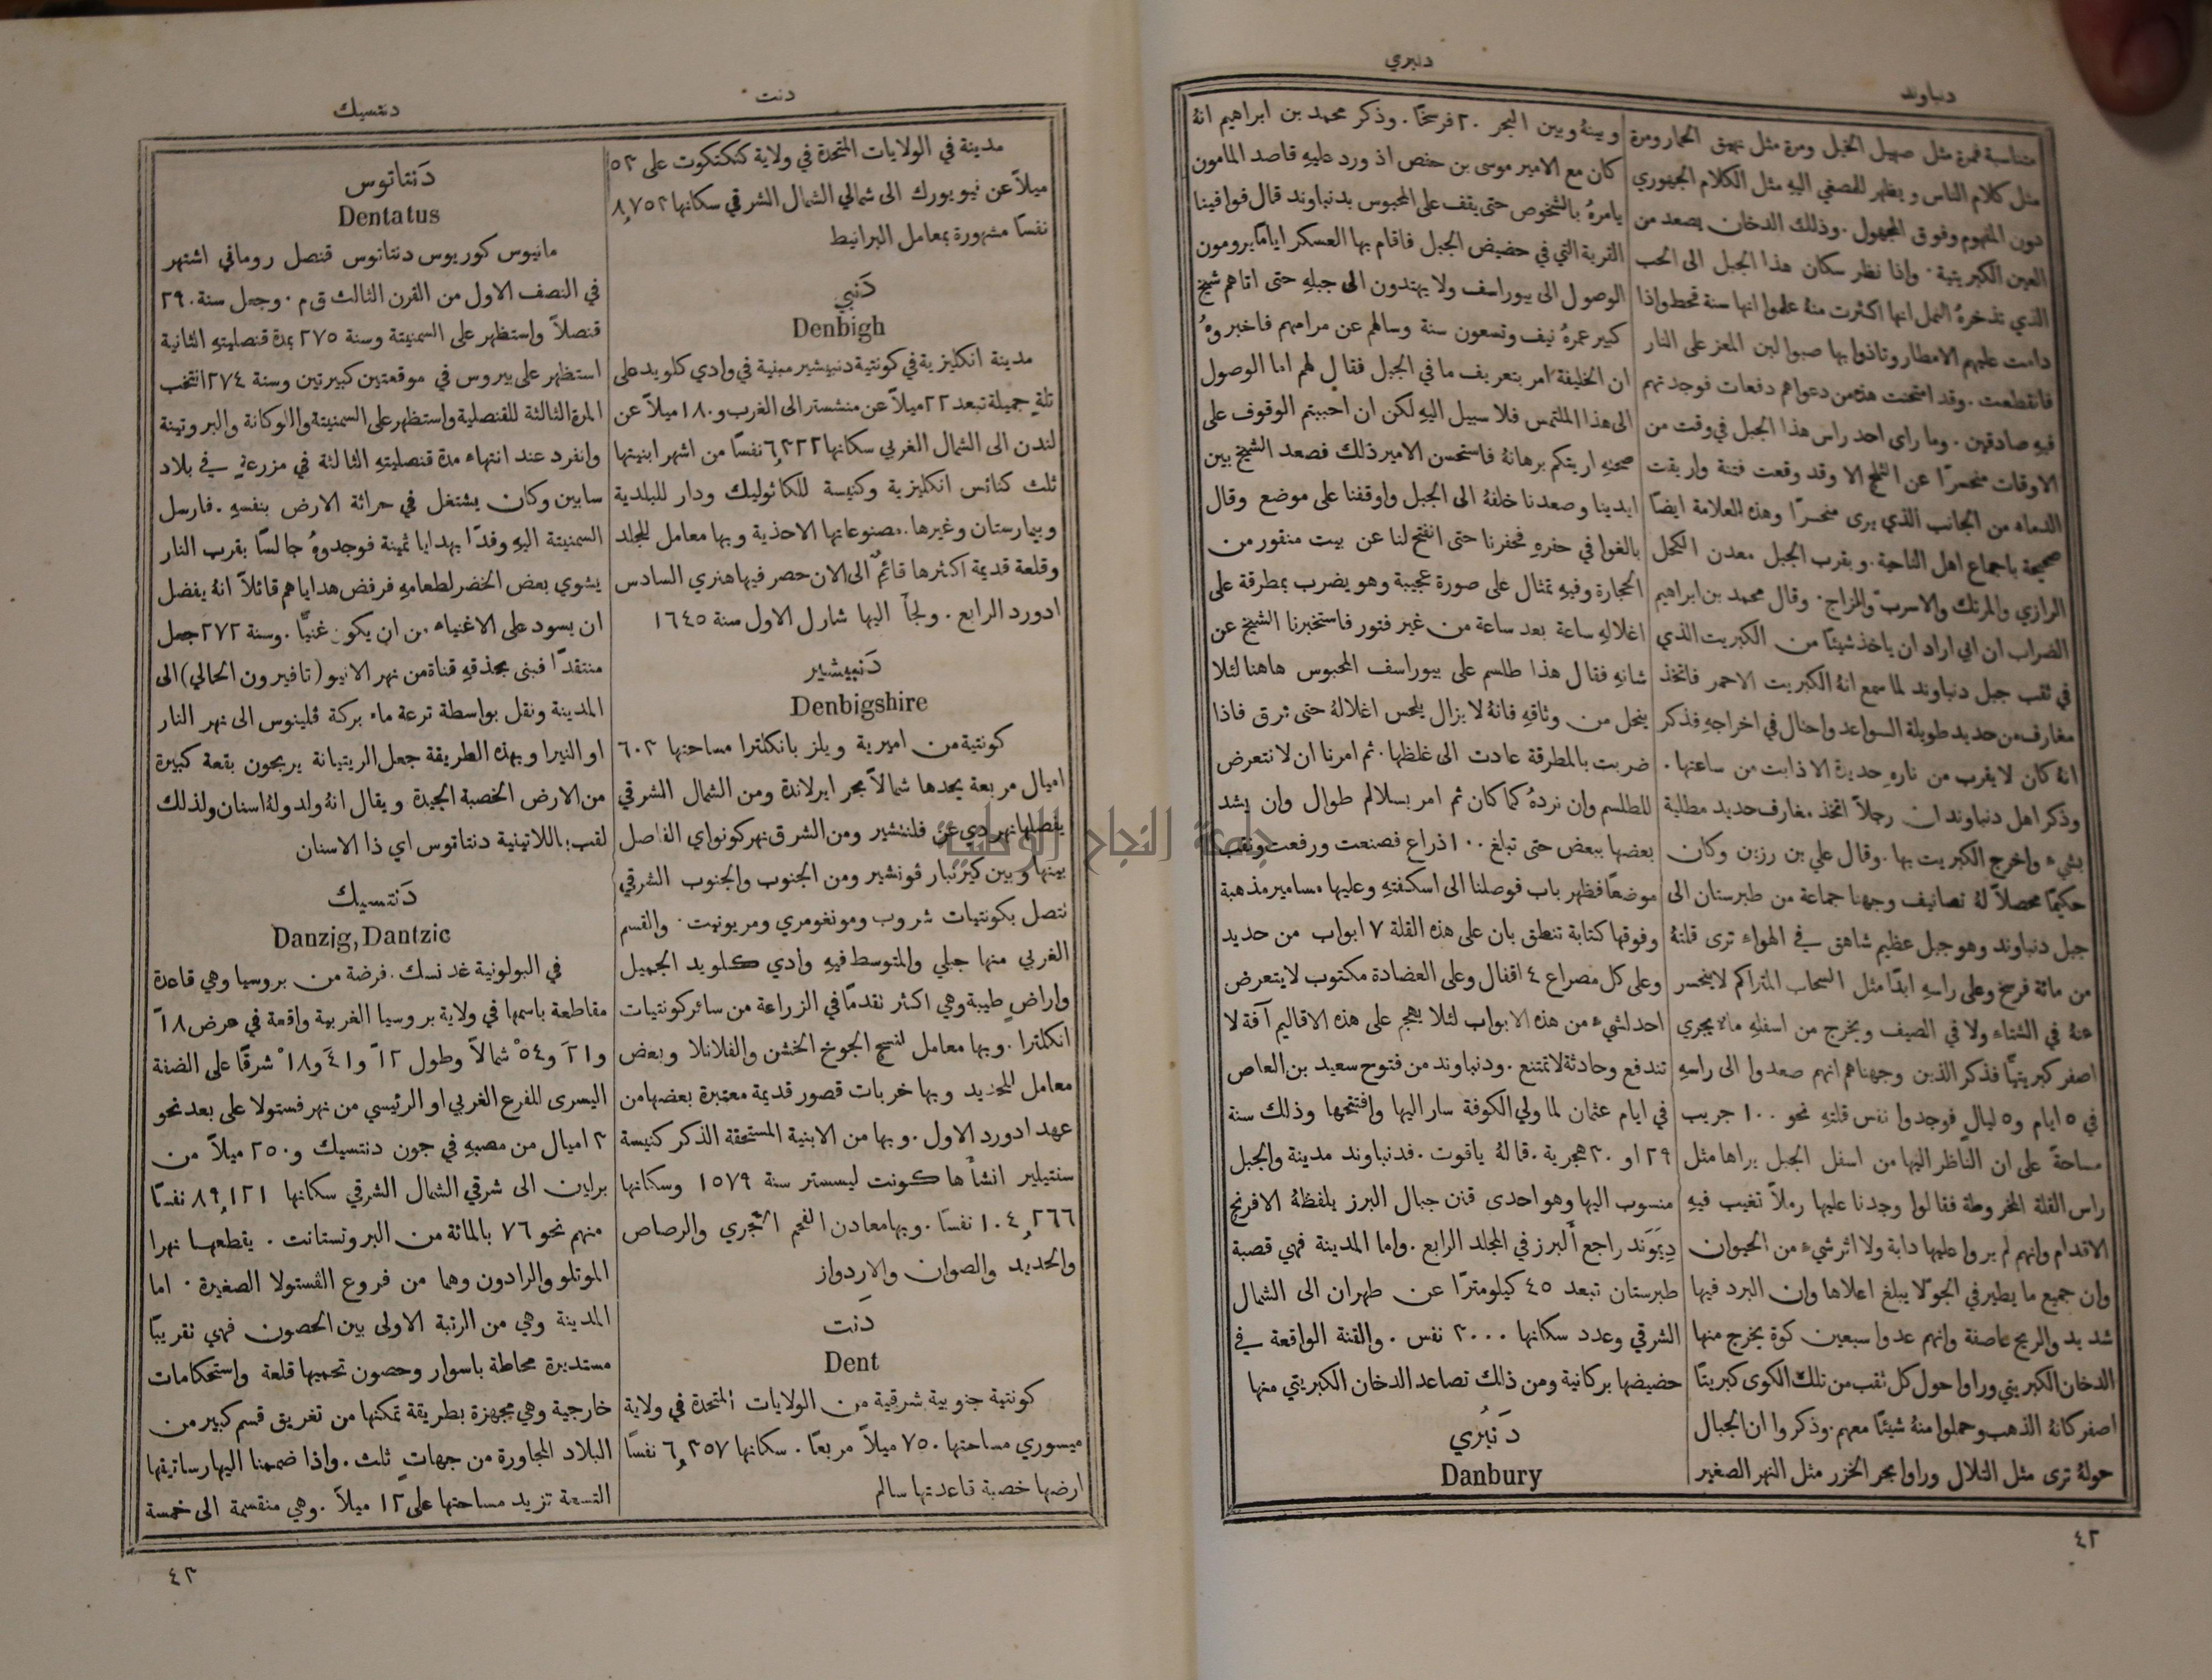 دنباوند
دنبري
متناسبة فمرة مثل صهيل الخيل ومرة مثل نهيق الحمار ومرة
مثل كلام الناس ويظهر للمصغي اليهِ مثل الكلام الجهوري
دون المفهوم وفوق المجهول. وذلك الدخان يصعد من
العين الكبريتية. واذا نظر سكان هذا الجبل الى الحب
الذي تذخرهُ النمل انها اكثرت منهُ علموا انها سنة قحط واذا
دامت عليهم الامطار وتاذوا بها صبوا لبن المعز على النار
فانقطعت. وقد امتحنت هذه من دعواهم دفعات فوجدتهم
فيهِ صادقين. وما راى احد راس هذا الجبل في وقت من
الاوقات منحسرًا عن الثلج الا وقد وقعت فتنة واريقت
الدماء من الجانب الذي يرى منحسرًا وهذه العلامة ايضًا
صحيحة باجماع اهل الناحية. وبقرب الجبل معدن الكحل
الرازي والمرتك والاسرب والزاج. وقال محمد بن ابراهيم
الضراب ان ابي اراد ان ياخذ شيئًا من الكبريت الذي
في ثقب جبل دنباوند لما سمع انهُ الكبريت الاحمر فاتخذ
مغارف من حديد طويلة السواعد واحتال في اخراجهِ فذكر
انهُ كان لا يقرب من نارهِ حديدة الا ذابت من ساعتها.
وذكر اهل دنباوند ان رجلاً اتخذ مغارف حديد مطلية
بشيء واخرج الكبريت بها. وقال علي بن رزين وكان
حكيمًا محصلاً لهُ تصانيف وجهنا جماعة من طبرستان الى
جبل دنباوند وهو جبل عظيم شاهق في الهواء ترى قلتهُ
من مائة فرسخ وعلى راسهِ ابدًا مثل السحاب المتراكم لا ينحسر
عنهُ في الشتاء ولا في الصيف ويخرج من اسفلهِ ماء يجري
اصفر كبريتيًّا فذكر الذين وجهناهم انهم صعدوا الى راسهِ
في ٥ ايام و٥ ليالٍ فوجدوا نفس قلتهِ نحو ١٠٠ جريب
مساحةً على ان الناظر اليها من اسفل الجبل يراها مثل
راس القلة المخروطة فقالوا وجدنا عليها رملاً تغيب فيهِ
الاقدام وانهم لم يروا عليها دابة ولا اثر شيء من الحيوان
وان جميع ما يطير في الجو لا يبلغ اعلاها وان البرد فيها
شديد والريح عاصفة وانهم عدوا سبعين كوة يخرج منها
الدخان الكبريتي وراوا حول كل ثقب من تلك الكوى كبريتًا
اصفر كانهُ الذهب وحملوا منهُ شيئًا معهم. وذكروا ان الجبال
حولهُ ترى مثل التلال وراوا بحر الخزر مثل النهر الصغير
وبينهُ وبين البحر ٢٠ فرسخًا. وذكر محمد بن ابراهيم انهُ
كان مع الامير موسى بن حفص اذ ورد عليهِ قاصد المامون
يامرهُ بالشخوص حتى يقف على المحبوس بدنباوند قال فوافينا
القرية التي في حضيض الجبل فاقام بها العسكر ايامًا يرومون
الوصول الى بيوراسف ولا يهتدون الى جبلهِ حتى اتاهم شيخ
كبير عمرهُ نيف وتسعون سنة وسالهم عن مرامهم فاخبروهُ
ان الخليفة امر بتعريف ما في الجبل فقال لهم اما الوصول
الى هذا الملتمس فلا سبيل اليهِ لكن ان احببتم الوقوف على
صحتهِ اريتكم برهانهُ فاستحسن الامير ذلك فصعد الشيخ بين
ايدينا وصعدنا خلفهُ الى الجبل واوقفنا على موضع وقال
بالغوا في حفرهِ فحفرنا حتى انفتح لنا عن بيت منقور من
الحجارة وفيهِ تمثال على صورة عجيبة وهو يضرب بمطرقة على
اغلالهِ ساعة بعد ساعة من غير فتور فاستخبرنا الشيخ عن
شانهِ فقال هذا طلسم على بيوراسف المحبوس هاهنا لئلا
ينحل من وثاقهِ فانهُ لا يزال يلحس اغلالهُ حتى ترق فاذا
ضربت بالمطرقة عادت الى غلظها. ثم امرنا ان لا نتعرض
للطلسم وان نردهُ كما كان ثم امر بسلالم طوال وان يشد
بعضها ببعض حتى تبلغ ١٠٠ ذراع فصنعت ورفعت ونقب
موضعًا فظهر باب فوصلنا الى اسكفتهِ وعليها مسامير مذهبة
وفوقها كتابة تنطق بان على هذه القلة ٧ ابواب من حديد
وعلى كل مصراع ٤ اقفال وعلى العضادة مكتوب لا يتعرض
احد لشيء من هذه الابواب لئلا يهجم على هذه الاقاليم آفة لا
تندفع وحادثة لا تمتنع. ودنباوند من فتوح سعيد بن العاص
في ايام عثمان لما ولي الكوفة سار اليها وافتتحها وذلك سنة
٢٩ او ٣٠ هجرية. قالهُ ياقوت. فدنباوند مدينة والجبل
منسوب اليها وهو احدى قنن جبال البرز يلفظهُ الافرنج
دِيمَوَند راجع أَلبرز في المجلد الرابع. واما المدينة فهي قصبة
طبرستان تبعد ٤٥ كيلومترًا عن طهران الى الشمال
الشرقي وعدد سكانها ٣٠٠٠ نفس. والقنة الواقعة في
حضيضها بركانية ومن ذلك تصاعد الدخان الكبريتي منها
دَنبُري
Danbury
٤٢
دنت
دنتسيك
مدينة في الولايات المتحدة في ولاية كنكتكوت على ٥٣
ميلاً عن نيويورك الى شمالي الشمال الشرقي سكانها ٨,٧٥٣
نفسًا مشهورة بمعامل البرانيط
دَنبي
Denbigh
مدينة انكليزية في كونتية دنبيشير مبنية في وادي كلويد على
تلةٍ جميلة تبعد ٢٢ ميلاً عن منشستر الى الغرب و١٨٠ ميلاً عن
لندن الى الشمال الغربي سكانها ٦,٣٢٢ نفسًا من اشهر ابنيتها
ثلث كنائس انكليزية وكنيسة للكاثوليك ودار للبلدية
وبيمارستان وغيرها. مصنوعاتها الاحذية وبها معامل للجلد
وقلعة قديمة اكثرها قائمٌ الى الان حصر فيها هنري السادس
ادورد الرابع. ولجأَ اليها شارل الاول سنة ١٦٤٥
دَنبيشير
Denbigshire
كونتية من اميرية ويلز بانكلترا مساحتها ٦٠٣
اميال مربعة يحدها شمالاً بحر ايرلاندة ومن الشمال الشرقي
يفصلها نهر دي عن فلنتشير ومن الشرق نهر كونواي الفاصل
بينها وبين كيرنبارڤونشير ومن الجنوب والجنوب الشرقي
تتصل بكونتيات شروب ومونغومري ومريونيت. والقسم
الغربي منها جبلي والمتوسط فيهِ وادي كلويد الجميل
واراضٍ طيبة وهي اكثر تقدمًا في الزراعة من سائر كونتيات
انكلترا. وبها معامل لنسج الجوخ الخشن والفلانلا وبعض
معامل للحديد وبها خربات قصور قديمة معتبرة بعضها من
عهد ادورد الاول. وبها من الابنية المستحقة الذكر كنيسة
سنتيلير انشأَها كونت ليسستر سنة ١٥٧٩ وسكانها
١٠٤,٢٦٦ نفسًا. وبها معادن الفحم الحجري والرصاص
والحديد والصوان والاردواز
دَنت
Dent
كونتية جنوبية شرقية من الولايات المتحدة في ولاية
ميسوري مساحتها ٧٥٠ ميلاً مربعًا. سكانها ٦,٣٥٧ نفسًا
ارضها خصبة قاعدتها سالم
دَنتاتوس
Dentatus
مانيوس كوريوس دنتاتوس قنصل روماني اشتهر
في النصف الاول من القرن الثالث ق م. وجعل سنة ٢٩٠
قنصلاً واستظهر على السمنيتة وسنة ٢٧٥ بمدة قنصليتهِ الثانية
استظهر على بيروس في موقعتين كبيرتين وسنة ٢٧٤ انتخب
المرة الثالثة للقنصلية واستظهر على السمنيتة والوكانة والبروتينة
وانفرد عند انتهاء مدة قنصليتهِ الثالثة في مزرعةٍ في بلاد
سابين وكان يشتغل في حراثة الارض بنفسهِ. فارسل
السمنيتة اليهِ وفدًا بهدايا ثمينة فوجدوهُ جالسًا بقرب النار
يشوي بعض الخضر لطعامهِ فرفض هداياهم قائلاً انهُ يفضل
ان يسود على الاغنياء من ان يكون غنيًّا. وسنة ٢٧٢ جعل
منتقدًا فبنى بحذقهِ قناة من نهر الانيو (تافيرون الحالي) الى
المدينة ونقل بواسطة ترعة ماء بركة ڤلينوس الى نهر النار
او النيرا وبهذه الطريقة جعل الريتيانة يربحون بقعة كبيرة
من الارض الخصبة الجيدة ويقال انهُ ولد ولهُ اسنان ولذلك
لقب باللاتينية دنتاتوس اي ذا الاسنان
دَنتسيك
Danzig, Dantzic
في البولونية غدنسك. فرضة من بروسيا وهي قاعدة
مقاطعة باسمها في ولاية بروسيا الغربية واقعة في عرض ١٨ً
و٢١َ و٥٤ْ شمالاً وطول ١٢ً و٤١َ و١٨ْ شرقًا على الضفة
اليسرى للفرع الغربي او الرئيسي من نهر فستولا على بعد نحو
٣ اميال من مصبهِ في جون دنتسيك و٢٥٠ ميلاً من
برلين الى شرقي الشمال الشرقي سكانها ٨٩,١٢١ نفسًا
منهم نحو ٧٦ بالمائة من البروتستانت. يقطعها نهرا
الموتلو والرادون وهما من فروع الڤستولا الصغيرة. اما
المدينة وهي من الرتبة الاولى بين الحصون فهي تقريبًا
مستديرة محاطة باسوار وحصون تحميها قلعة واستحكامات
خارجية وهي مجهزة بطريقة تمكنها من تغريق قسم كبير من
البلاد المجاورة من جهاتٍ ثلث. واذا ضممنا اليها رساتيقها
التسعة تزيد مساحتها على ١٢ ميلاً. وهي منقسمة الى خمسة
٤٣
جامعة النجاح الوطنية